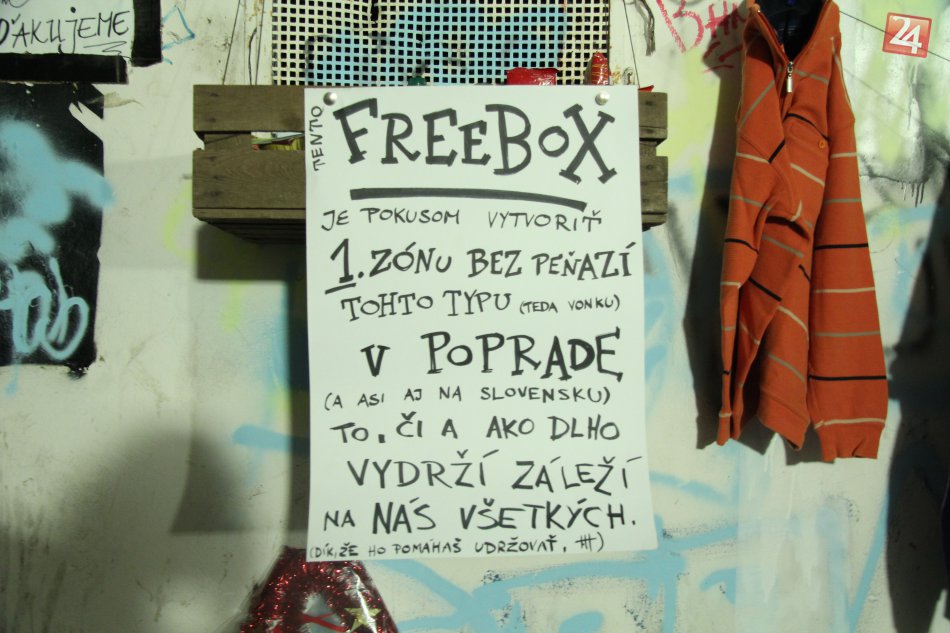 ĎAKUJEME
24
TENTO
FREEBOX
JE POKUSOM VYTVORIŤ
1. ZÓNU BEZ PEŇAZÍ
TOHTO TYPU (TEDA VONKU)
V POPRADE
(A ASI AJ NA SLOVENSKU)
TO, ČI A AKO DLHO
VYDRŽÍ ZÁLEŽÍ
NA NÁS VŠETKÝCH.
(DÍK, ŽE HO POMÁHAŠ UDRŽOVAŤ.)